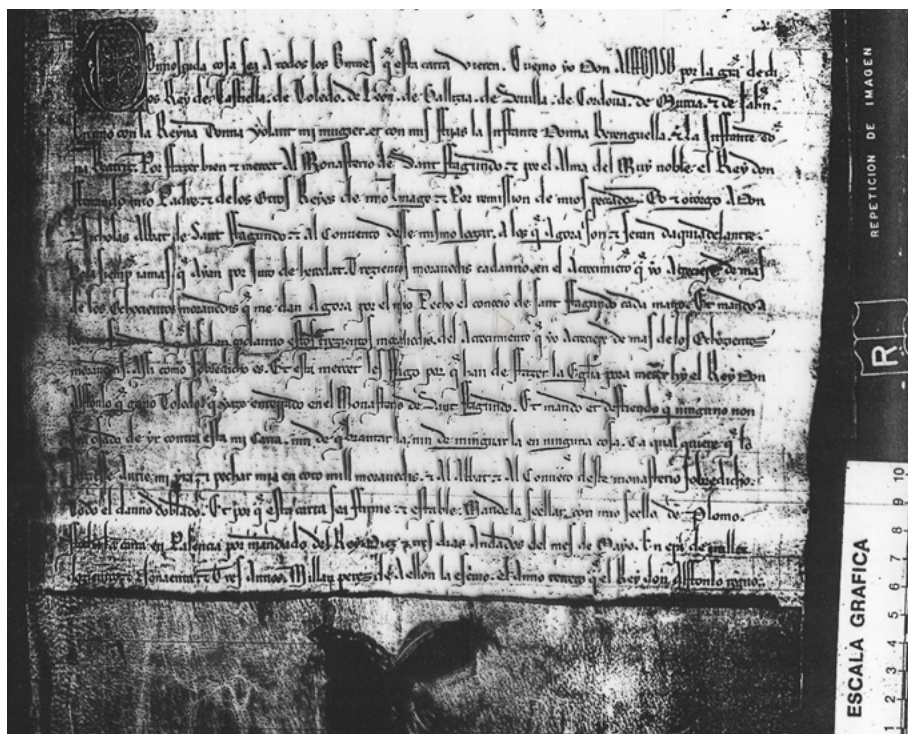 Connosçuda cosa sea A todos los Omnes q̃ esta carta vieren. Cuemo yo Don ALFONSO por la gr̃a de di
os Rey de Castiella. de Toledo. de Leon. de Gallizia. de Seuilla. de Cordoua. de Murcia. ⁊ de Jahn.
En uno con la Reyna Donna yolant mi mugier. et con mis fijas la Inffante Donna Berenguella. ⁊ la Inffante do
na Beatriz. Por ffazer bien ⁊ merçet Al Monasterio de Sant ffagundo. ⁊ por el Alma del Muy noble. el Rey don
fferrando mio Padre. ⁊ de los Otros Reyes de mio linage ⁊ Por remission de mios peccados. Do ⁊ otorgo A Don
Nicholas Abbat de Sant ffagundo. ⁊ Al Conuento desse mismo logar. A los q̃ Agora son ⁊ seran daqui adelante.
Pora siemp̃ iamas q̃ Ayan por Iuro de heredat. Trezientos morauedis cadanno. en el Acrecimieto q̃ yo Acreçi de mas
de los Ochocientos morauedis q̃ me dan Agora por el mio Pecho el conceio de sant ffagundo cada mayo. Et mando A
den cadanno estos trezientos morauedis del Acrecimiento q̃ yo Acreçi de mas de los Ochocientos
morauedis. Assi como sobredicho es. Et esta merçet les ffago por q̃ han de ffazer la Egl̃ia pora meter hy el Rey Don
Alffonso q̃ gano Toledo. q̃ yago enterrado en el Monasterio de Sant ffagundo. Et mando et deffiendo q̃ ninguno non
sea osado de yr contra esta mi Carta. nin de q̃brantar la. nin de minguar la en ninguna cosa. Ca qual quiere q̃ lo
ffiziesse. Aurie mi yra. ⁊ pechar mya en coto mill morauedis. ⁊ Al Abbat ⁊ Al Conuẽto deste monasterio sobredicho.
Todo el danno doblado. Et por q̃ esta carta sea ffirme ⁊ estable. Mandela seellar con mio seello de Plomo.
ffecha la carta en Palencia por mandado del Rey. Diez ⁊ tres dias Andados del mes de Mayo. En era de mill ⁊
dozientos ⁊ Nouaenta ⁊ Tres Annos. Millan perez de Aellon la escriuio. el Anno tercero q̃ el Rey don Alffonso regno.
REPETICION DE IMAGEN
R
ESCALA GRAFICA
1 2 3 4 5 6 7 8 9 10